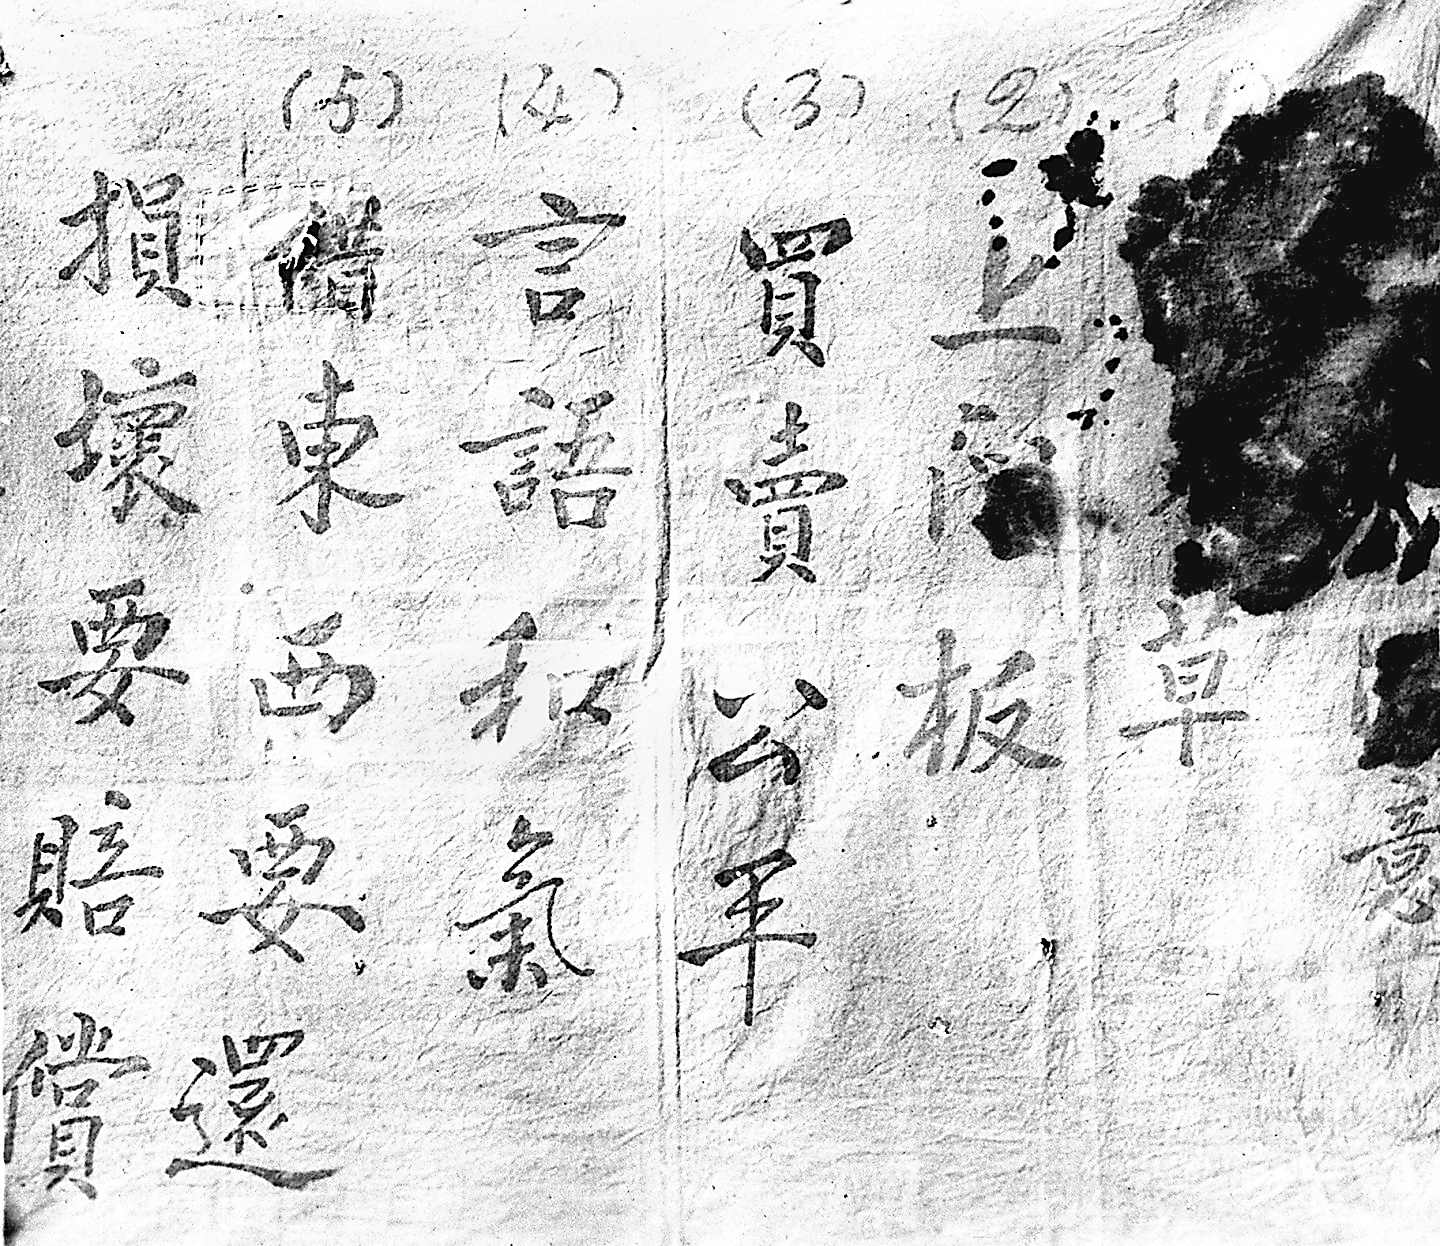 意
(1) 草
(2) 上板
(3) 買賣公平
(4) 言語和氣
(5) 借東西要還
損壞要賠償